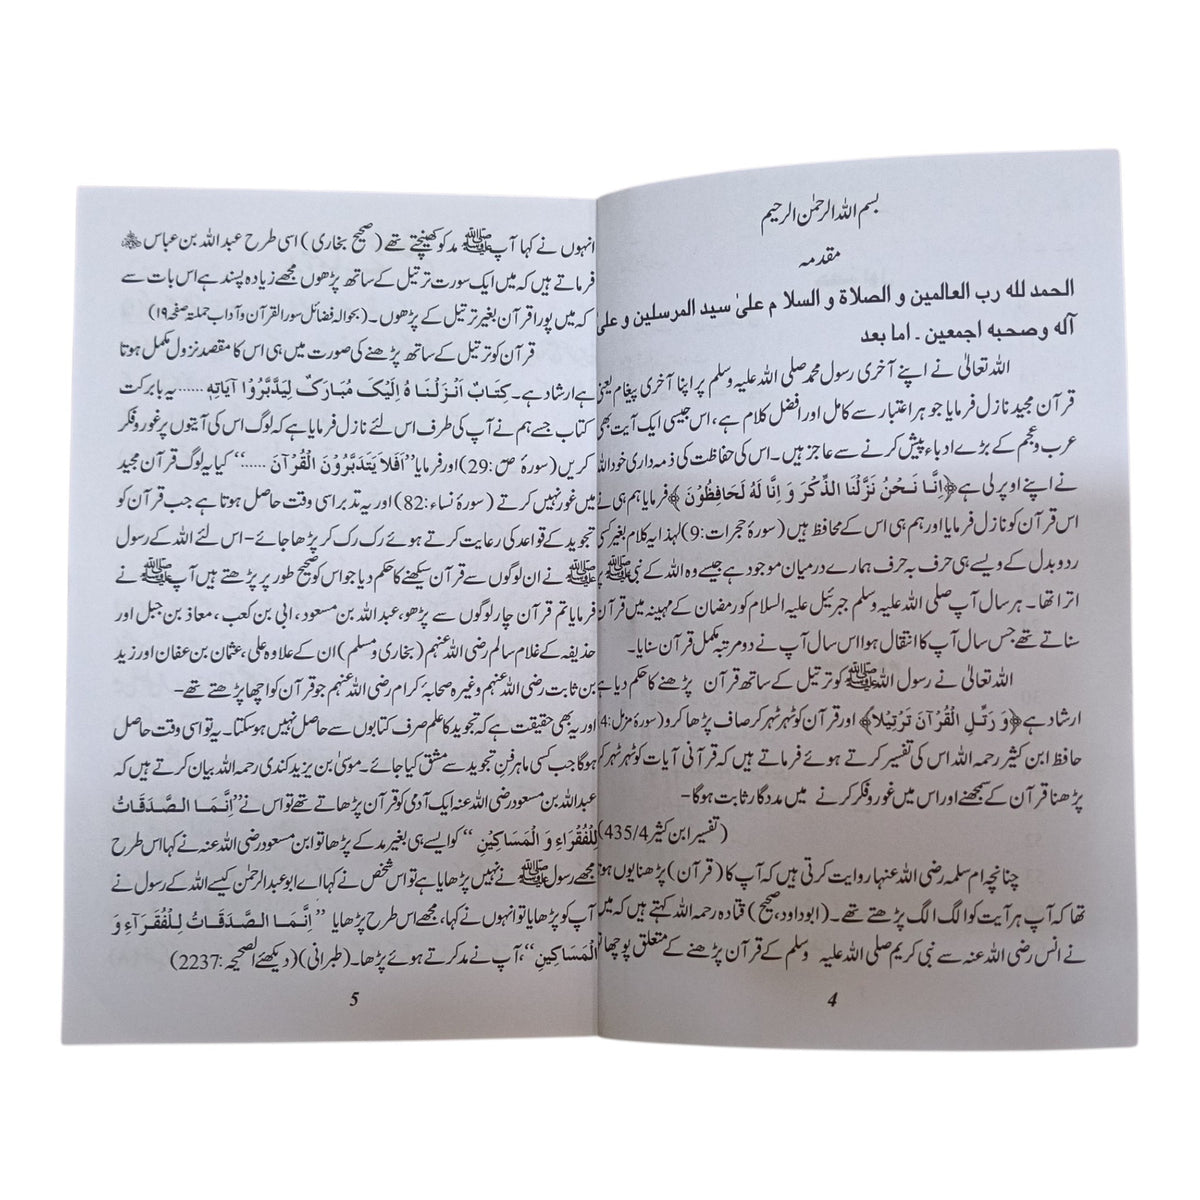 بسم اللہ الرحمٰن الرحیم
مقدمہ
الحمد لله رب العالمين و الصلاة و السلا م علیٰ سيد المرسلين و علی
آله وصحبه اجمعين ۔ اما بعد
اللہ تعالیٰ نے اپنے آخری رسول محمد صلی اللہ علیہ وسلم پر اپنا آخری پیغام یعنی
قرآن مجید نازل فرمایا جو ہر اعتبار سے کامل اور افضل کلام ہے، اس جیسی ایک آیت بھی
عرب و عجم کے بڑے ادباء پیش کرنے سے عاجز ہیں۔ اس کی حفاظت کی ذمہ داری خود اللہ
نے اپنے اوپر لی ہے ﴿اِنَّا نَحْنُ نَزَّلْنَا الذِّكْرَ وَ اِنَّا لَهُ لَحَافِظُوْنَ﴾ فرمایا ہم ہی نے
اس قرآن کو نازل فرمایا اور ہم ہی اس کے محافظ ہیں (سورۂ حجرات:9) لہذا یہ کلام بغیر کسی
ردو بدل کے ویسے ہی حرف بہ حرف ہمارے درمیان موجود ہے جیسے وہ اللہ کے نبی ﷺ پر
اترا تھا۔ ہر سال آپ صلی اللہ علیہ وسلم جبرئیل علیہ السلام کو رمضان کے مہینہ میں قرآن
سناتے تھے جس سال آپ کا انتقال ہوا اس سال آپ نے دو مرتبہ مکمل قرآن سنایا۔
اللہ تعالیٰ نے رسول اللہ ﷺ کو ترتیل کے ساتھ قرآن پڑھنے کا حکم دیا ہے
ارشاد ہے ﴿وَ رَتِّلِ الْقُرْآنَ تَرْتِيْلاً﴾ اور قرآن کو ٹہر ٹہر کر صاف پڑھا کرو (سورۂ مزمل:4
حافظ ابن کثیر رحمہ اللہ اس کی تفسیر کرتے ہوئے فرماتے ہیں کہ قرآنی آیات کو ٹہر ٹہر کر
پڑھنا قرآن کے سمجھنے اور اس میں غور و فکر کرنے میں مددگار ثابت ہوگا۔
(تفسیر ابن کثیر 435/4)
چنانچہ ام سلمہ رضی اللہ عنہا روایت کرتی ہیں کہ آپ کا (قرآن) پڑھنا یوں ہوتا
تھا کہ آپ ہر آیت کو الگ الگ پڑھتے تھے۔ (ابو داود، صحیح) قتادہ رحمہ اللہ کہتے ہیں کہ میں
نے انس رضی اللہ عنہ سے نبی کریم صلی اللہ علیہ وسلم کے قرآن پڑھنے کے متعلق پوچھا تو
4
انہوں نے کہا آپ ﷺ مد کو کھینچتے تھے (صحیح بخاری) اسی طرح عبد اللہ بن عباس ؓ
فرماتے ہیں کہ میں ایک سورت ترتیل کے ساتھ پڑھوں مجھے زیادہ پسند ہے اس بات سے
کہ میں پورا قرآن بغیر ترتیل کے پڑھوں۔ (بحوالہ فضائل سور القرآن و آداب حملتہ صفحہ ۱۹)
قرآن کو ترتیل کے ساتھ پڑھنے کی صورت میں ہی اس کا مقصد نزول مکمل ہوتا
ہے ارشاد ہے۔ كِتَابٌ اَنْزَلْنَا هُ اِلَيْكَ مُبَارَكٌ لِيَدَّبَّرُوْا آيَاتِهٖ ...... یہ بابرکت
کتاب جسے ہم نے آپ کی طرف اس لئے نازل فرمایا ہے کہ لوگ اس کی آیتوں پر غور و فکر
کریں (سورۂ ص:29) اور فرمایا ”اَفَلاَ يَتَدَبَّرُوْنَ الْقُرْآنَ .....“ کیا یہ لوگ قرآن مجید
میں غور نہیں کرتے (سورۂ نساء:82) اور یہ تدبر اسی وقت حاصل ہوتا ہے جب قرآن کو
تجوید کے قواعد کی رعایت کرتے ہوئے رک رک کر پڑھا جائے۔ اس لئے اللہ کے رسول
ﷺ نے ان لوگوں سے قرآن سیکھنے کا حکم دیا جو اس کو صحیح طور پر پڑھتے ہیں آپ ﷺ نے
فرمایا تم قرآن چار لوگوں سے پڑھو، عبد اللہ بن مسعود، ابی بن کعب، معاذ بن جبل اور
حذیفہ کے غلام سالم رضی اللہ عنہم (بخاری و مسلم) ان کے علاوہ علی، عثمان بن عفان اور زید
بن ثابت رضی اللہ عنہم وغیرہ صحابہ کرام رضی اللہ عنہم جو قرآن کو اچھا پڑھتے تھے۔
اور یہ بھی حقیقت ہے کہ تجوید کا علم صرف کتابوں سے حاصل نہیں ہوسکتا۔ یہ تو اسی وقت حاصل
ہوگا جب کسی ماہر فن تجوید سے مشق کیا جائے۔ موسیٰ بن یزید کندی رحمہ اللہ بیان کرتے ہیں کہ
عبد اللہ بن مسعود رضی اللہ عنہ ایک آدمی کو قرآن پڑھاتے تھے تو اس نے ”اِنَّمَا الصَّدَقَاتُ
لِلْفُقَرَاءِ وَ الْمَسَاكِيْنِ“ کو ایسے ہی بغیر مد کے پڑھا تو ابن مسعود رضی اللہ عنہ نے کہا اس طرح
مجھے رسول ﷺ نے نہیں پڑھایا ہے تو اس شخص نے کہا اے ابو عبد الرحمٰن کیسے اللہ کے رسول نے
آپ کو پڑھایا تو انہوں نے کہا، مجھے اس طرح پڑھایا ”اِنَّمَا الصَّدَقَاتُ لِلْفُقَرَآءِ وَ
الْمَسَاكِيْنِ“، آپ نے مد کرتے ہوئے پڑھا۔ (طبرانی) (دیکھئے الصحیحہ:2237)
5